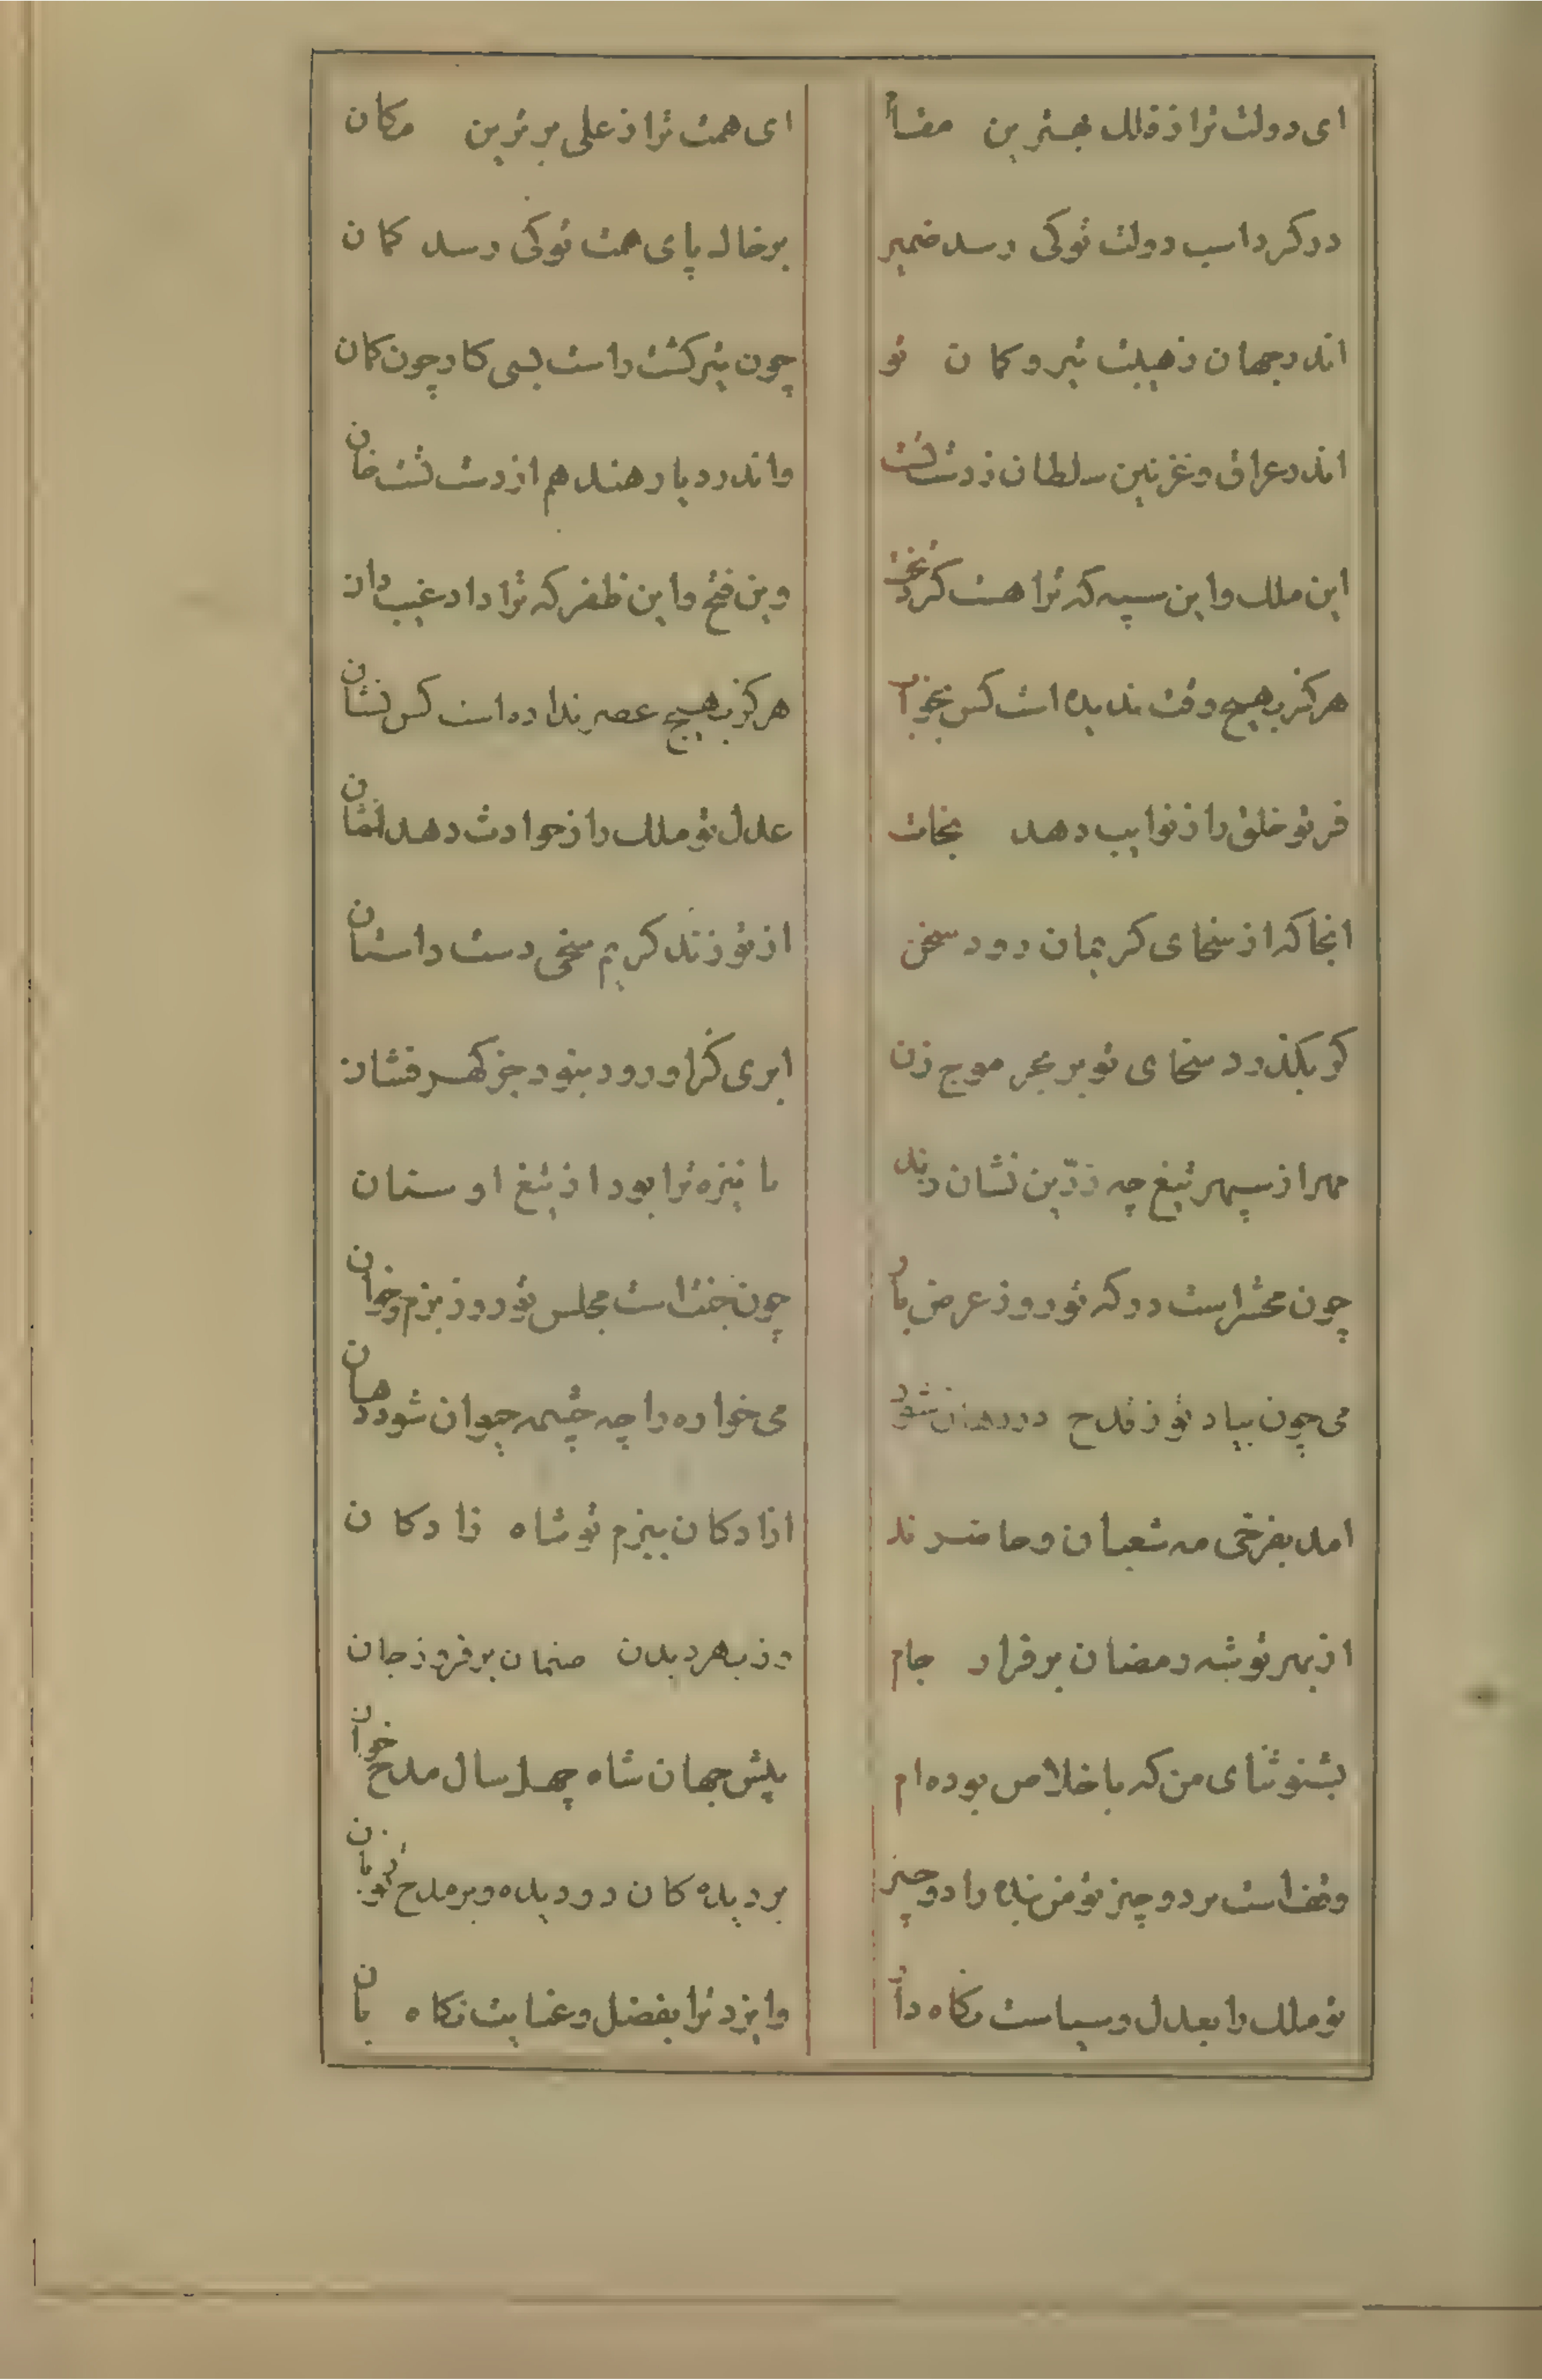 ای دولت ترا ز فلک بهترین مقام ای همت ترا ز علی برترین مکان
در کرد اسب دولت تو کی رسد ضمیر بر خاک پای همت تو کی رسد کمان
اندر جهان ز هیبت تیر و کمان تو چون تیر کشت راست بسی کار چون کمان
اندر عراق و غزنین سلطان ز دست تست واندر دیار هند هم از دست تست خان
این ملک و این سپه که ترا هست کرد بخت وین فتح و این ظفر که ترا داد غیب دان
هرکز بهیچ وقت ندیده است کس بخواب هرکز بهیچ عصر نداده است کس نشان
فر تو خلق را ز نوایب دهد نجات عدل تو ملک را ز حوادث دهد امان
انجا که از سخای کریمان رود سخن از تو زند کریم سخی دست داستان
کر بکذرد سخای تو بر بحر موج زن ابری کزو رود نبود جز کهر فشان
مهر از سپهر تیغ چه زرین نشان زند تا نیزه ترا بود از تیغ او سنان
چون محشر است درکه تو روز عرض بار چون جنت است مجلس تو روز بزم و خوان
می چون بیاد تو ز قدح در دهان شود می خواره را چه چشمه حیوان شود دهان
امد بفرخی مه شعبان و حاضرند ازادکان ببزم تو شاه زادکان
از بهر توشه رمضان برفراز جام وز بهر دیدن صنمان برفروز جان
بشنو ثنای من که باخلاص بوده‌ام پیش جهان شاه چهل سال مدح خوان
وقف است بر دو چیز تو من بنده را دو چیز بر دیده کان دو دیده و بر مدح تو زبان
تو ملک را بعدل و سیاست نکاه دار وایزد ترا بفضل و عنایت نکاه بان